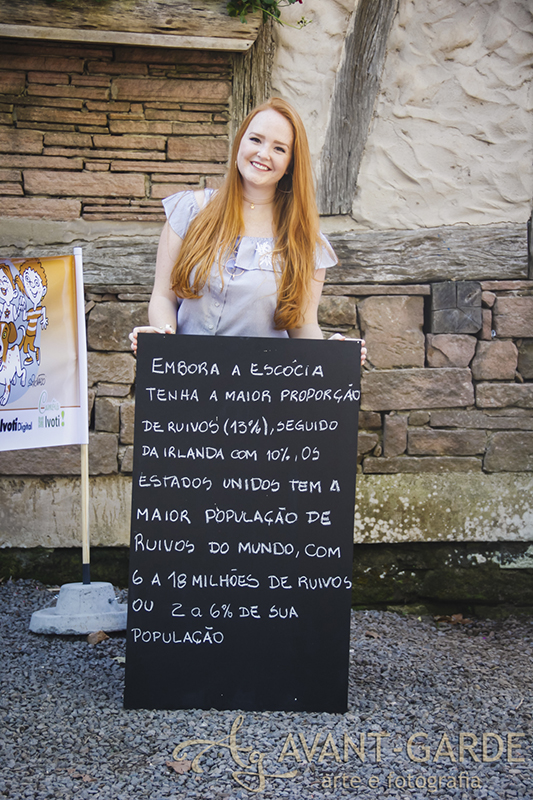 EMBORA A ESCÓCIA
TENHA A MAIOR PROPORÇÃO
DE RUIVOS (13%), SEGUIDO
DA IRLANDA COM 10%, OS
ESTADOS UNIDOS TEM A
MAIOR POPULAÇÃO DE
RUIVOS DO MUNDO, COM
6 A 18 MILHÕES DE RUIVOS
OU 2 a 6% DE SUA
POPULAÇÃO
Ivoti Digital
Ivoti!
Ag AVANT·GARDE
arte e fotografia